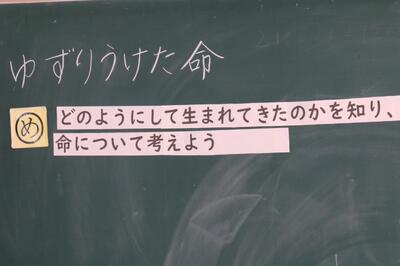 ゆずりうけた命
め
どのようにして生まれてきたのかを知り、
命について考えよう